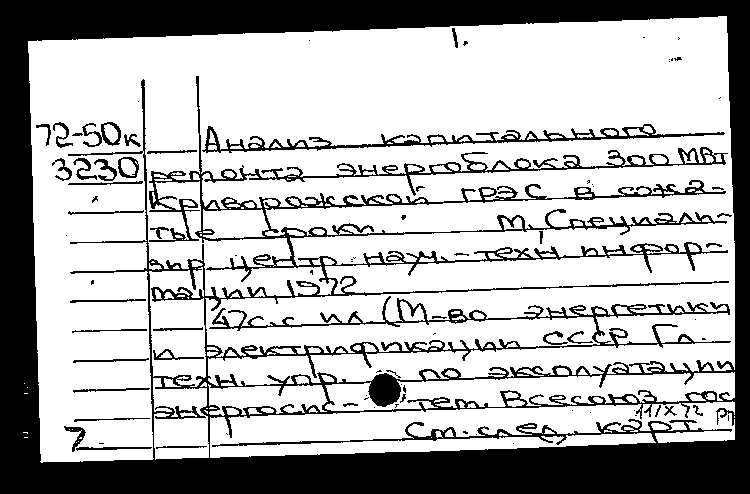 1.
72-50к Анализ капитального
3230 ремонта энергоблока 300 МВт
Криворожской ГРЭС в сжа-
тые сроки. М., Специали-
зир. центр науч.-техн. инфор-
мации, 1972
47с. с ил (М-во энергетики
и электрификации СССР. Гл.
техн. упр. по эксплуатации
энергосис- тем. Всесоюз. гос
11/X 72
7 См. след. карт.